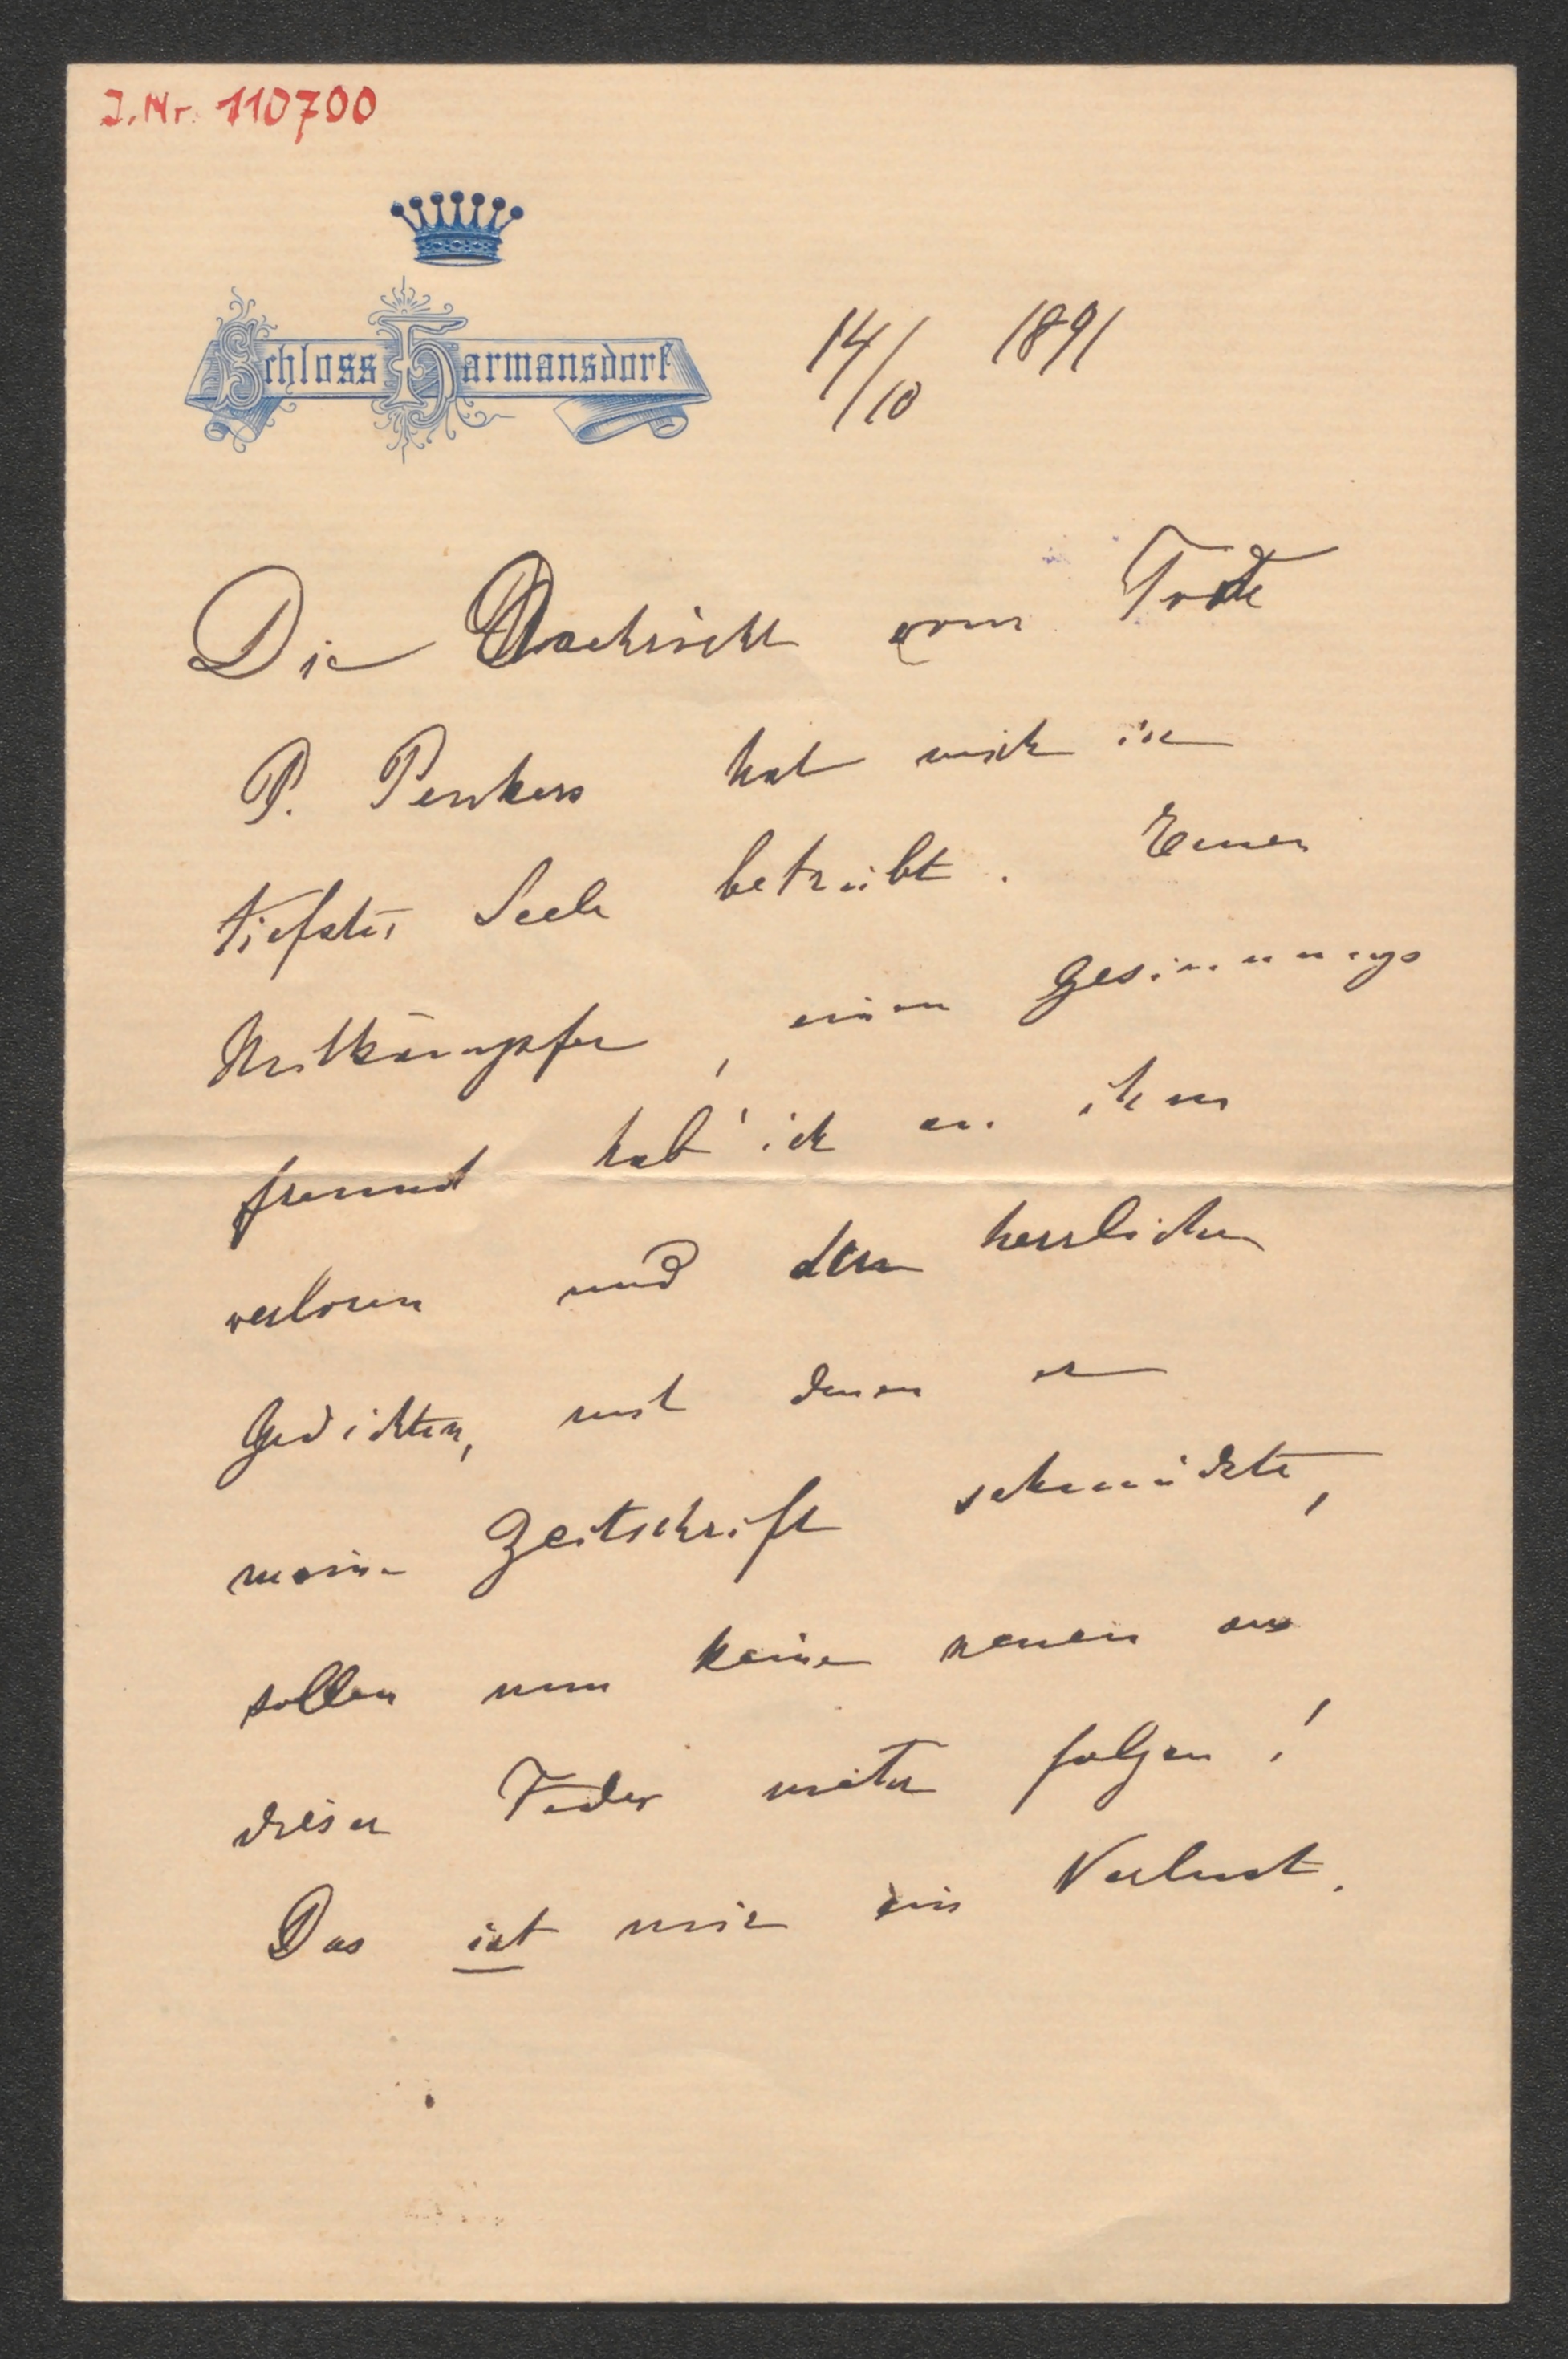 J. Nr. 110700
Schloss Harmansdorf
14/10 1891
Die Nachricht vom Tode
P. Penkers hat mich in
tiefster Seele betrübt. Einen
Mitkämpfer, einen Gesinnungs
freund hab' ich an ihm
verloren und den herrlichen
Gedichten, mit denen er
meine Zeitschrift schmückte,
sollen nun keine neuen aus
dieser Feder weiter folgen!
Das ist mir ein Verlust.